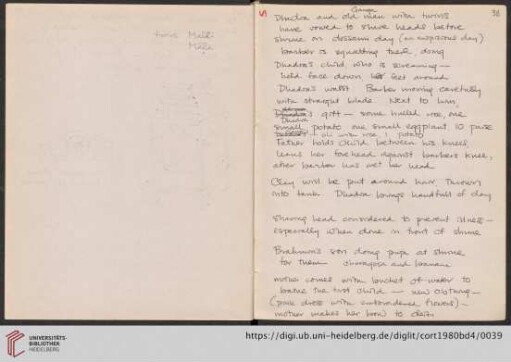 twins Malli
Malla
5
38
Ganga
Dhadra and old man with twins
have vowed to shave heads before
shrine on dossami day (an auspicious day)
barber is squatting there, doing
Dhadra's child, who is screaming —
held face down feet around
Dhadra's waist. Barber moving carefully
with straight blade. Next to him,
Dhadra's gift — some hulled rice, one
small potato one small eggplant 10 paise
oil with rice, 1 potato
Father holds child between his knees,
leans her forehead against barber's knee,
after barber has wet her head
Clay will be put around hair, thrown
into tank. Dhadra brings handfull of clay
Shaving head considered to prevent illness —
especially when done in front of shrine
Brahman's son doing puja at shrine
for them — and
mother comes with bucket of water to
bathe the first child — new clothing —
(pink dress with embroidered flowers) —
mother makes her bow to
UNIVERSITÄTS-
BIBLIOTHEK
HEIDELBERG
https://digi.ub.uni-heidelberg.de/diglit/cort1980bd4/0039